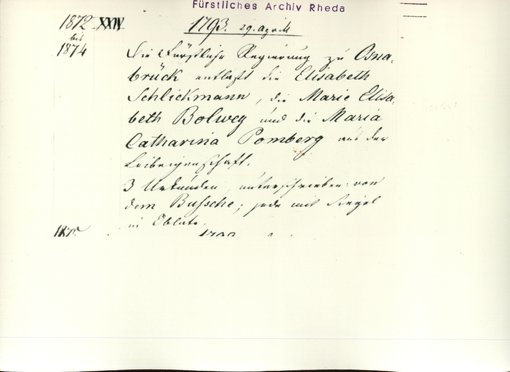 Fürstliches Archiv Rheda
1872 XXIV. 1793. 29. April
bis
1874
Die Fürstliche Regierung zu Osna-
brück entläßt die Elisabeth
Schlickmann, die Marie Elisa-
beth Bolweg und die Maria
Catharina Pomberg aus der
Leibeigenschaft.
3 Urkunden, unterschrieben von
dem Bussche; jede mit Siegel
in Oblate.